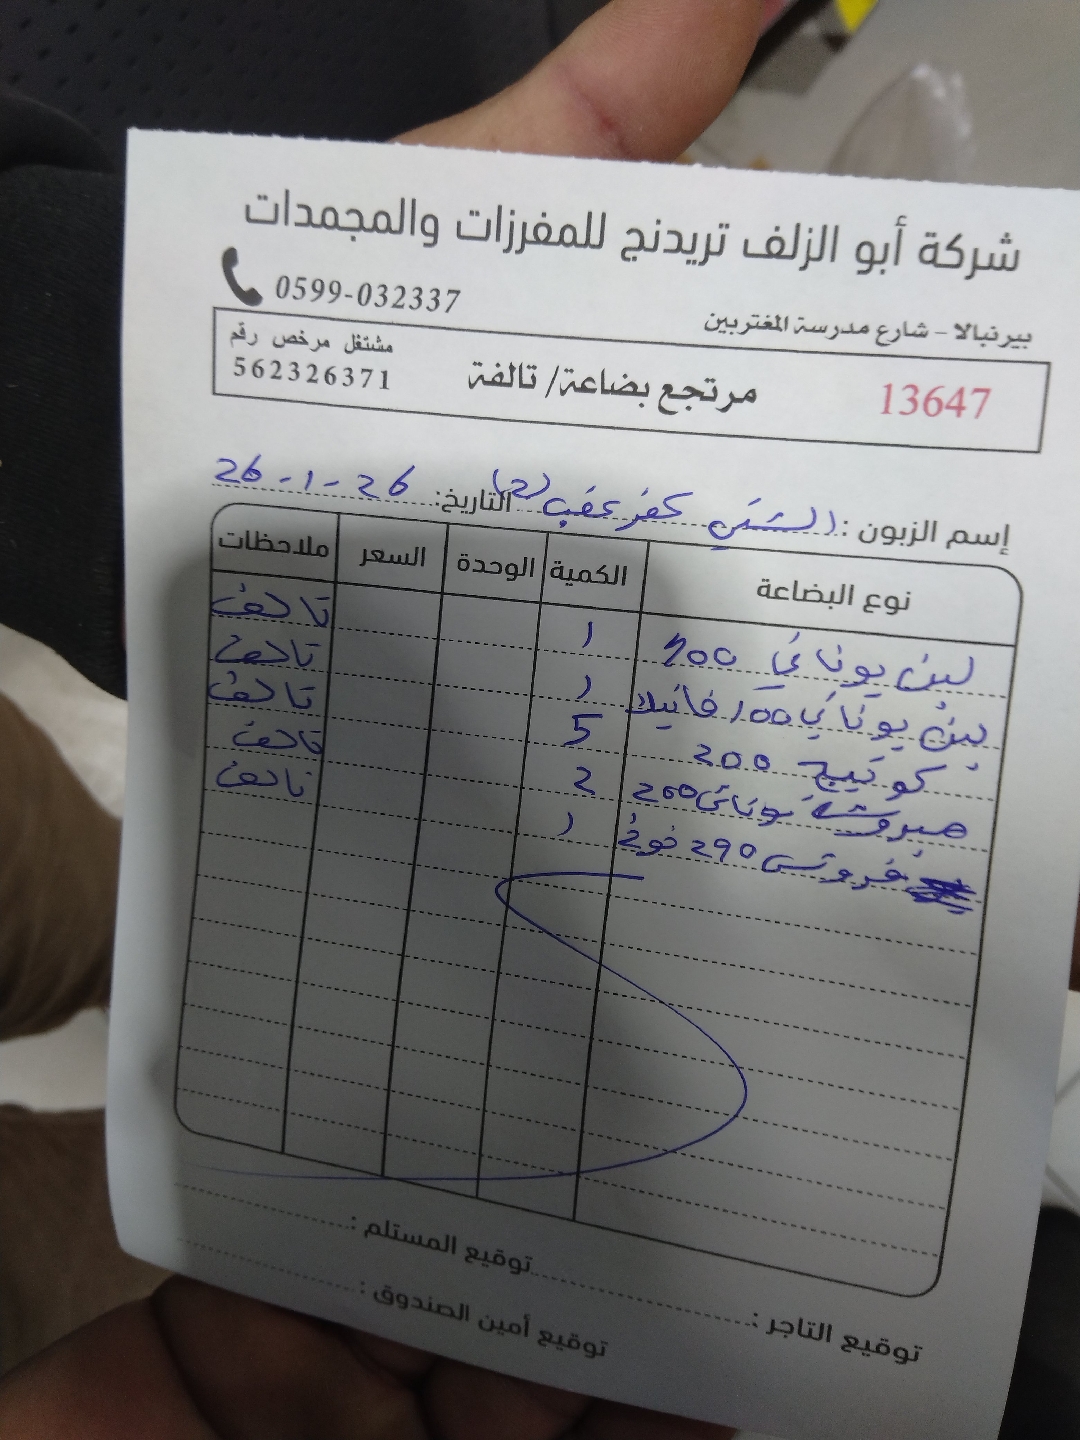 شركة أبو الزلف تريدنج للمفرزات والمجمدات
بيرنبالا - شارع مدرسة المغتربين 0599-032337
13647 مرتجع بضاعة/ تالفة مشتغل مرخص رقم 562326371
إسم الزبون : الشني كفر عقب (2) التاريخ: 26-1-26
نوع البضاعة الكمية الوحدة السعر ملاحظات
لبن يوناني 700 1 تالف
لبن يوناني 100 فانيلا 1 تالف
كوتيج 200 5 تالف
مبروشة يوناني 200 2 تالف
فروتس 290 خوخ 1 تالف
توقيع التاجر : توقيع المستلم :
توقيع أمين الصندوق :